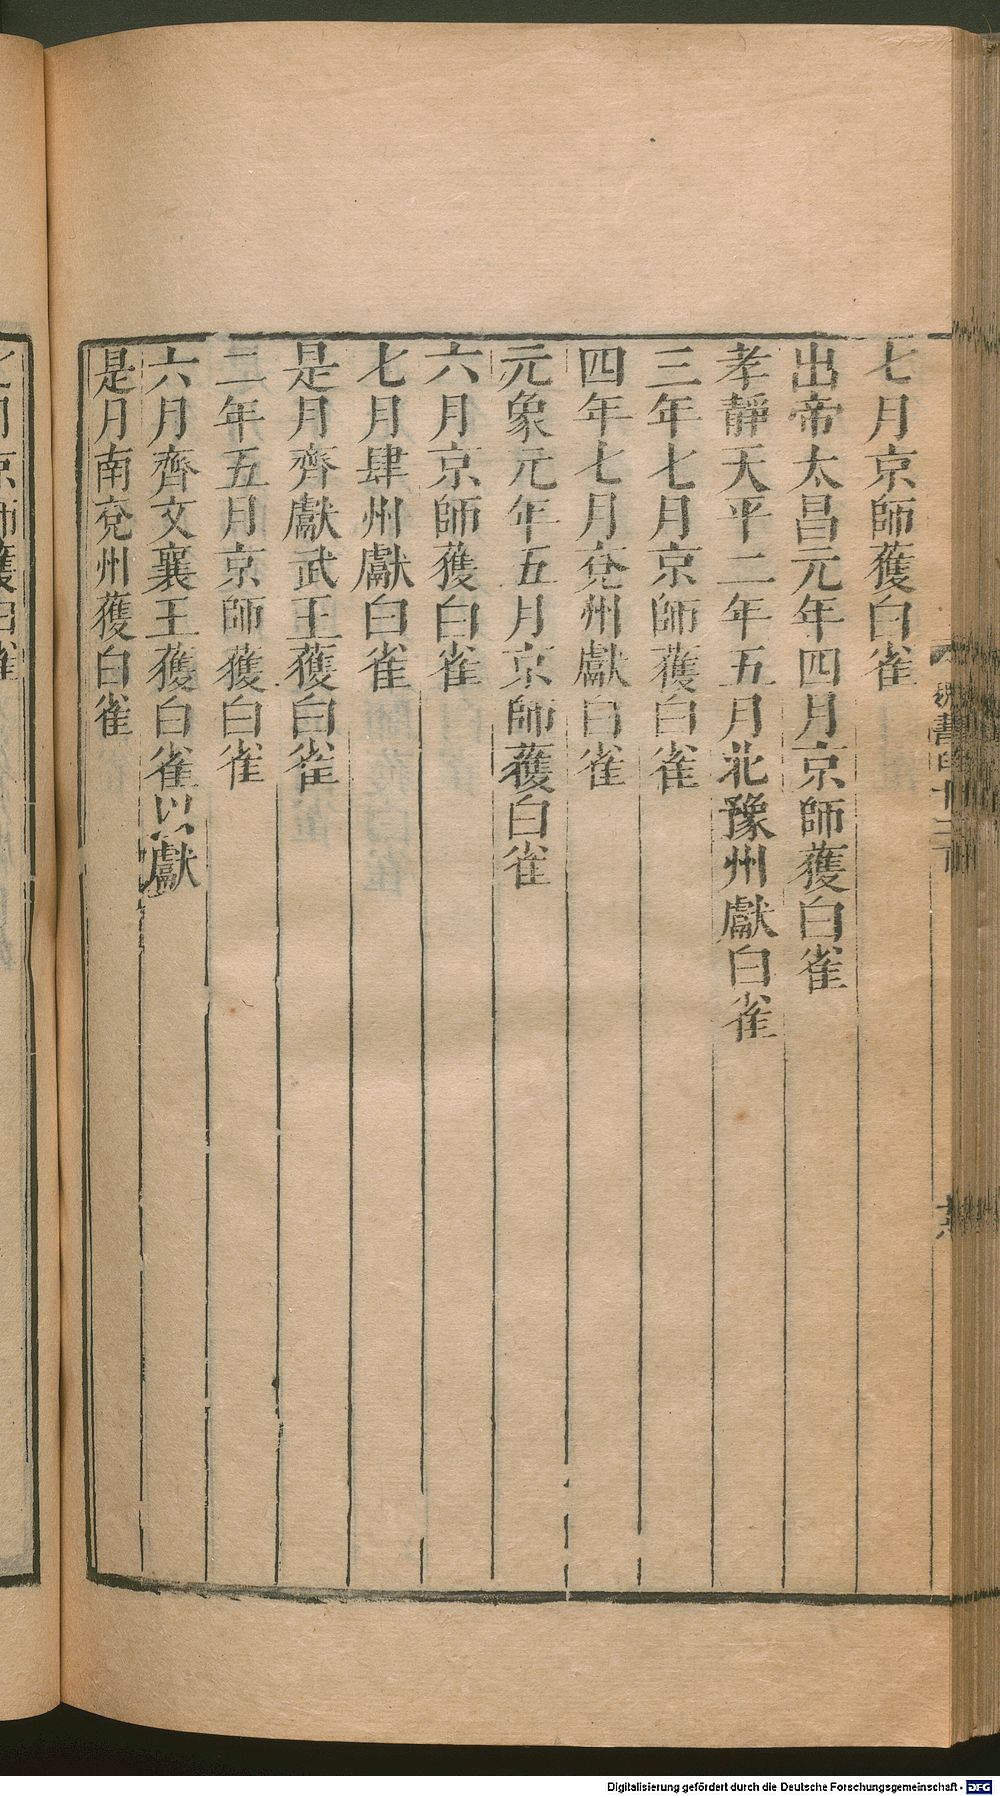 七月京師獲白雀
出帝太昌元年四月京師獲白雀
孝靜天平二年五月北豫州獻白雀
三年七月京師獲白雀
四年七月兗州獻白雀
元象元年五月京師獲白雀
六月京師獲白雀
七月肆州獻白雀
是月齊獻武王獲白雀
二年五月京師獲白雀
六月齊文襄王獲白雀以獻
是月南兗州獲白雀
七月京師獲白雀
Digitalisierung gefördert durch die Deutsche Forschungsgemeinschaft - DFG